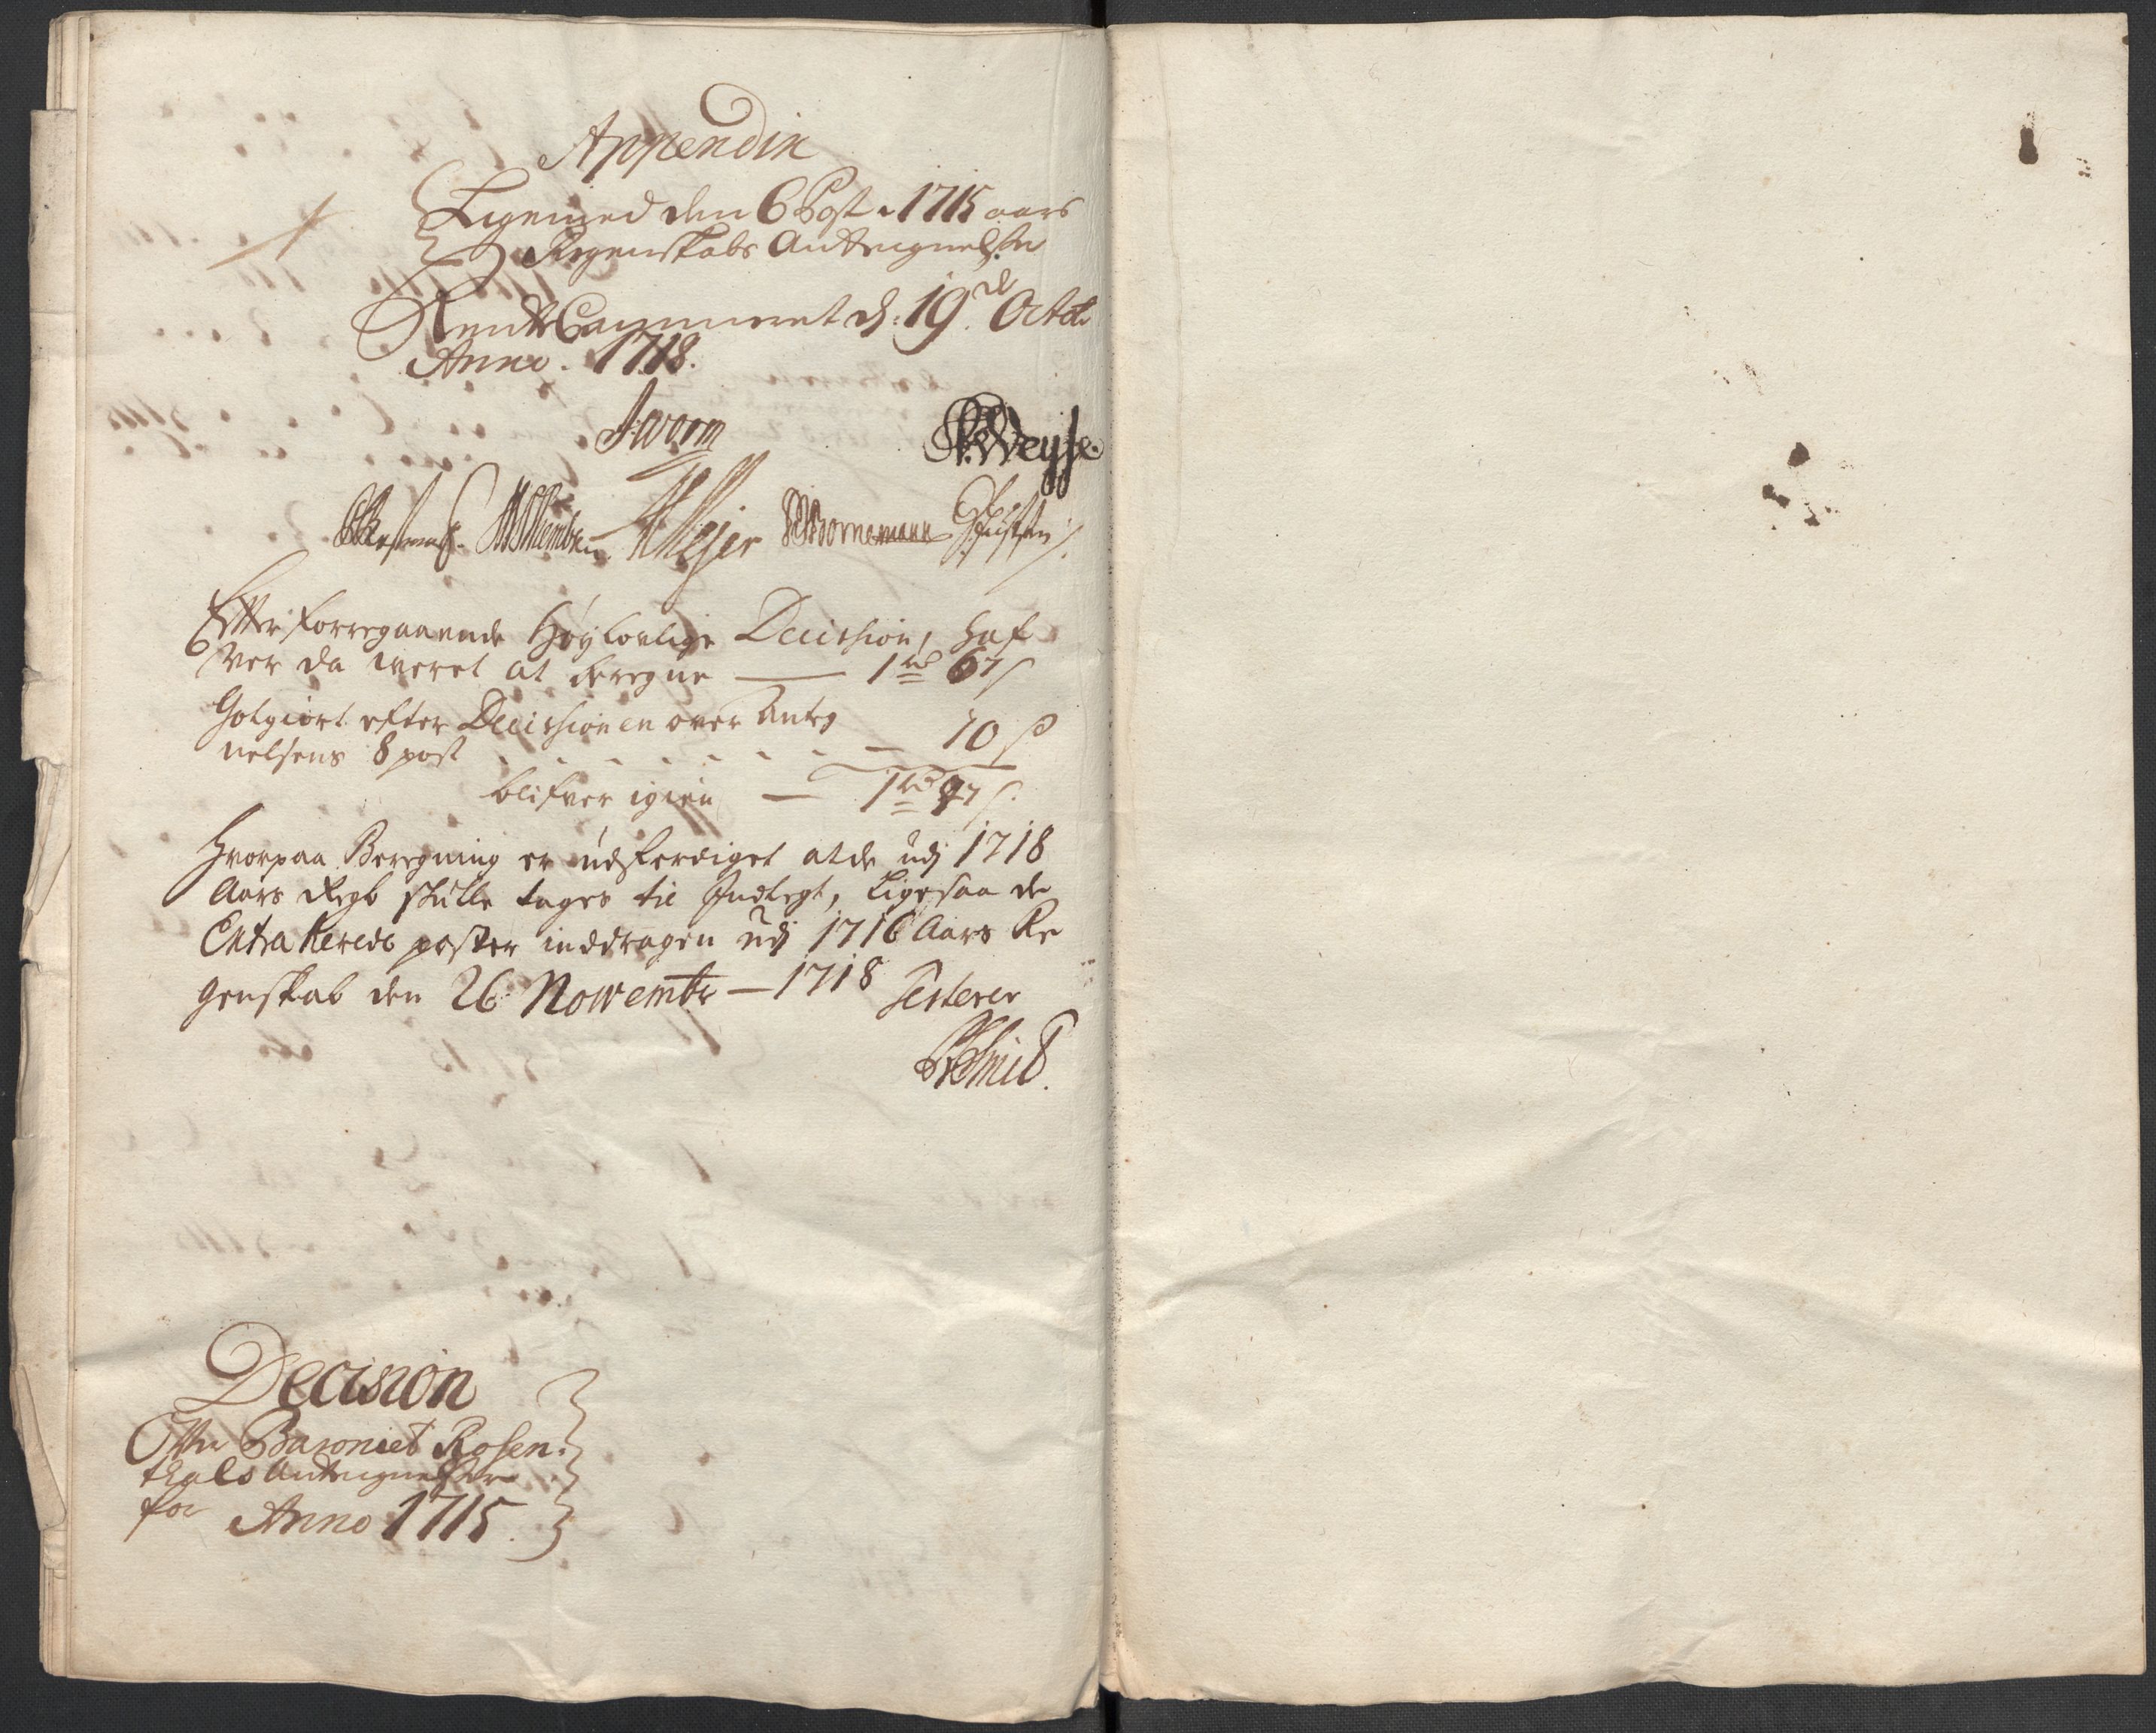 Appendix
Ligemed den 6 Post i 1715 aars
Regenskabs Antegnelser
Rente Cammeret d: 19de Octob
Anno. 1718.
J Worm
Weyse
Meyer Bornemann
Efter forregaaende Høylovlige Decission, haf
ver da weret at beregne — 1 rd 67 s
Gotgiort efter Decissionen over Anteg
nelsens 8 post 70 s
blifver igien — 1 rd
Hvorpaa Beregning er udferdiget at de udj 1718
Aars Regb skulle tages til Indtegt, Ligesaa de
Extraherede poster inddragen udj 1716 Aars Re
genskab den 26 Novembr — 1718 Testerer
Smid
Decision
Ofver Baroniet Rosen-
thals Antegnelser
for Anno 1715